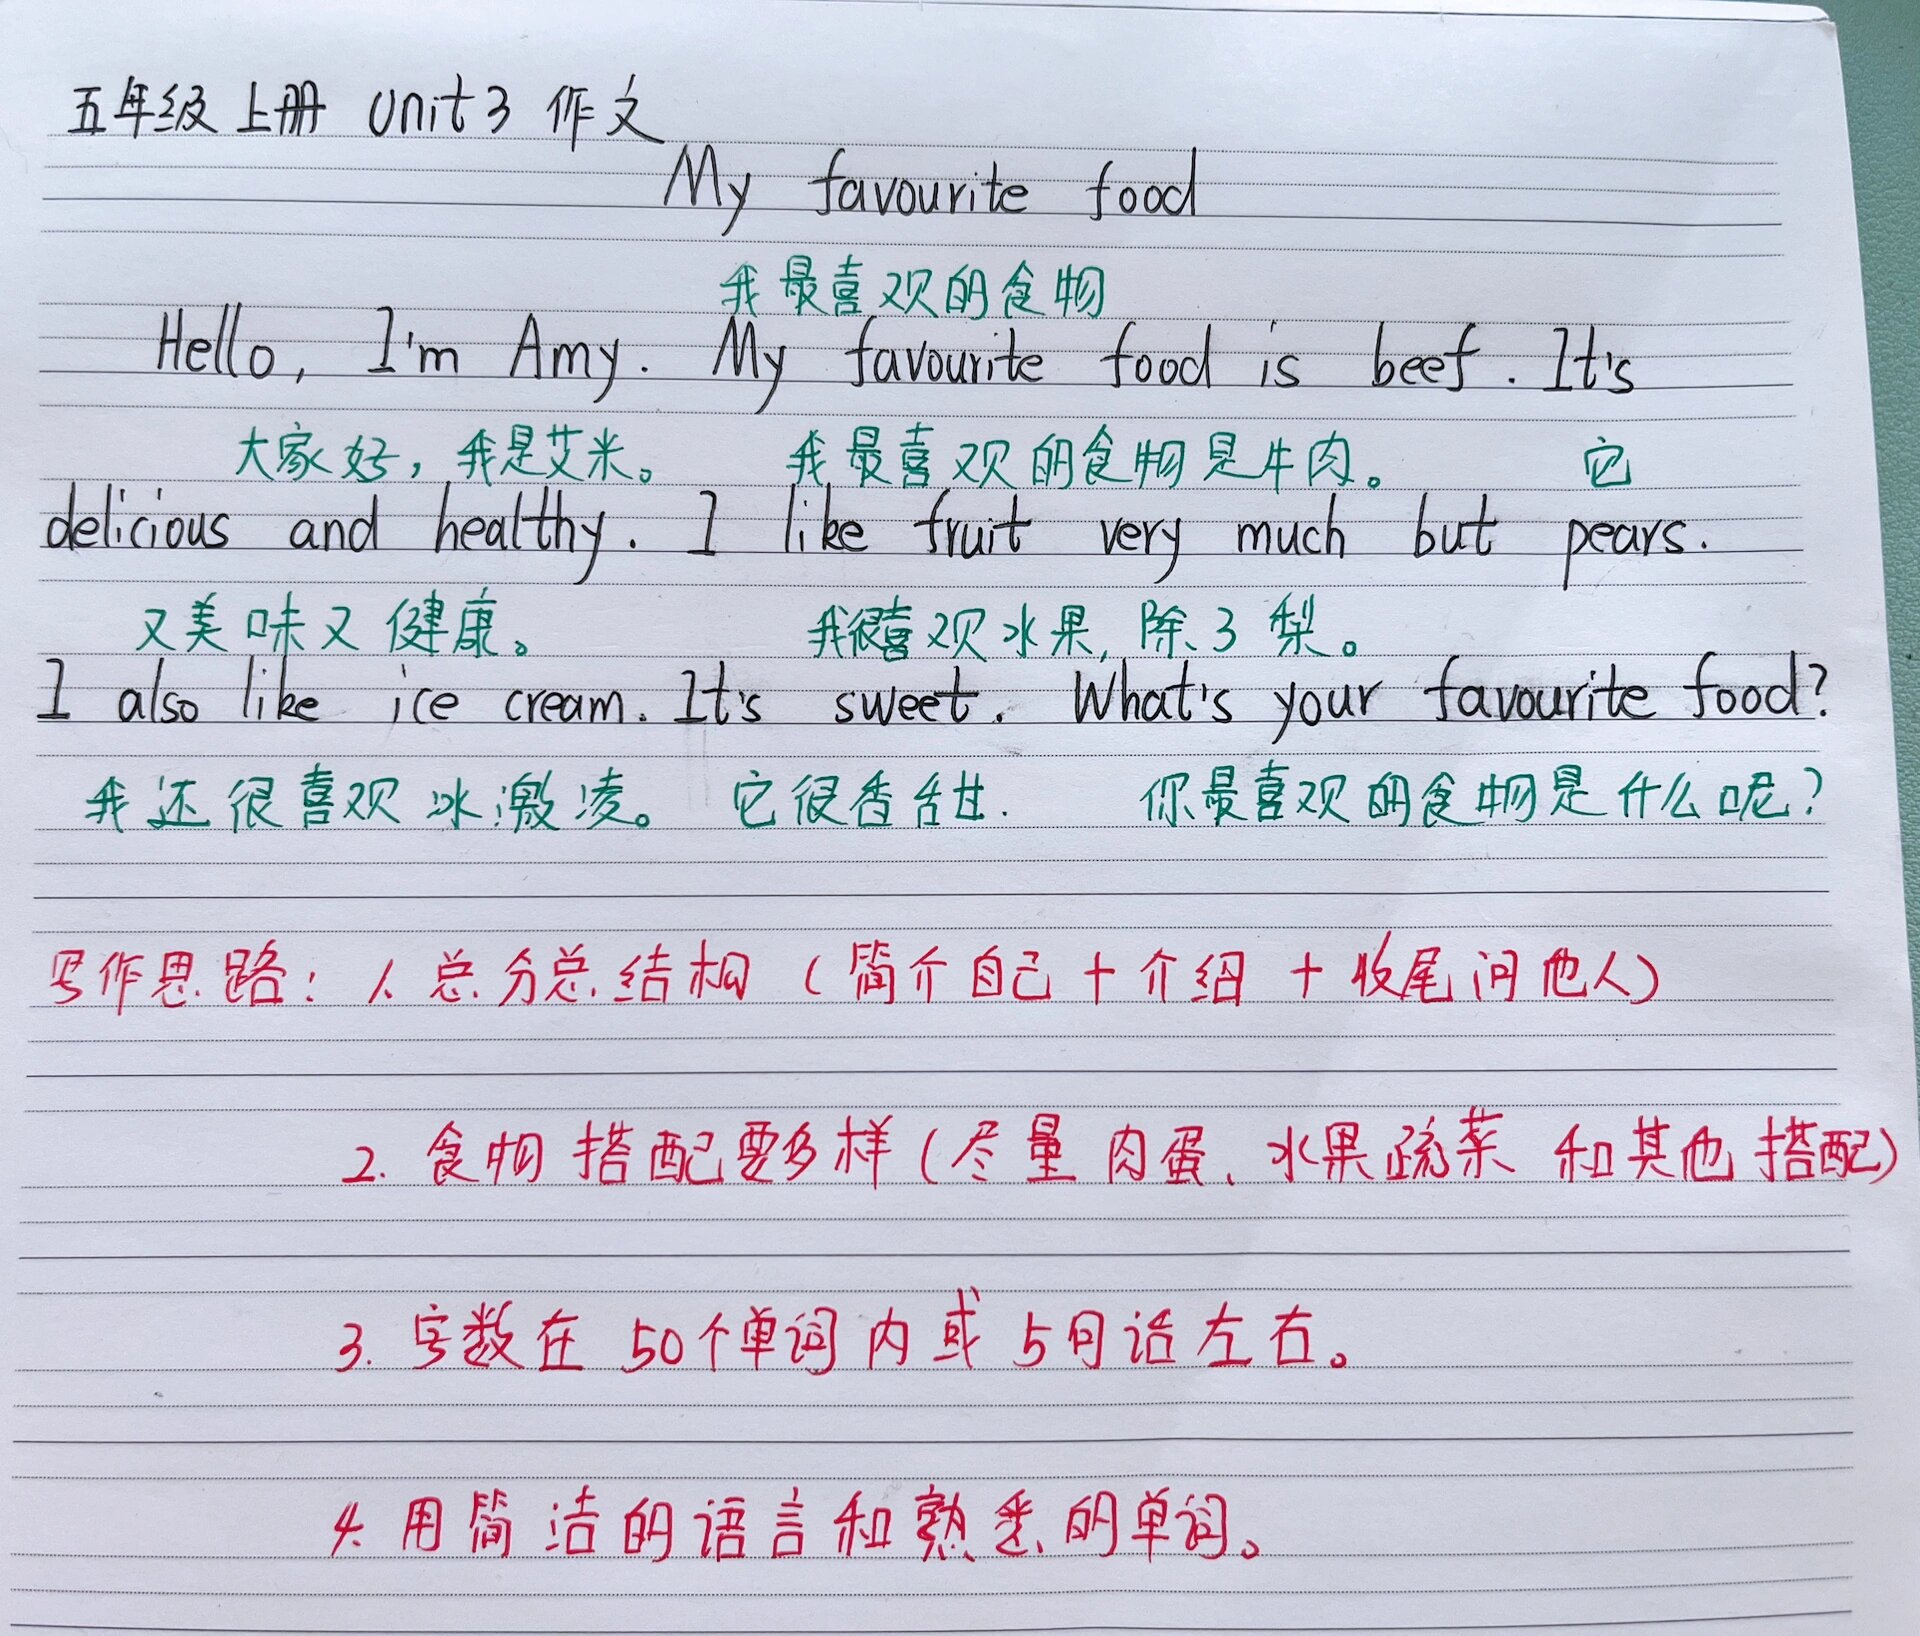 五年级上册 Unit3 作文
My favourite food
我最喜欢的食物
Hello, I'm Amy. My favourite food is beef. It's
大家好，我是艾米。 我最喜欢的食物是牛肉。 它
delicious and healthy. I like fruit very much but pears.
又美味又健康。 我很喜欢水果, 除了梨。
I also like ice cream. It's sweet. What's your favourite food?
我还很喜欢冰激凌。 它很香甜. 你最喜欢的食物是什么呢?
写作思路: 1. 总分总结构 (简介自己+介绍+收尾问他人)
2. 食物搭配要多样(尽量肉蛋、水果蔬菜和其他搭配)
3. 字数在50个单词内或5句话左右。
4. 用简洁的语言和熟悉的单词。